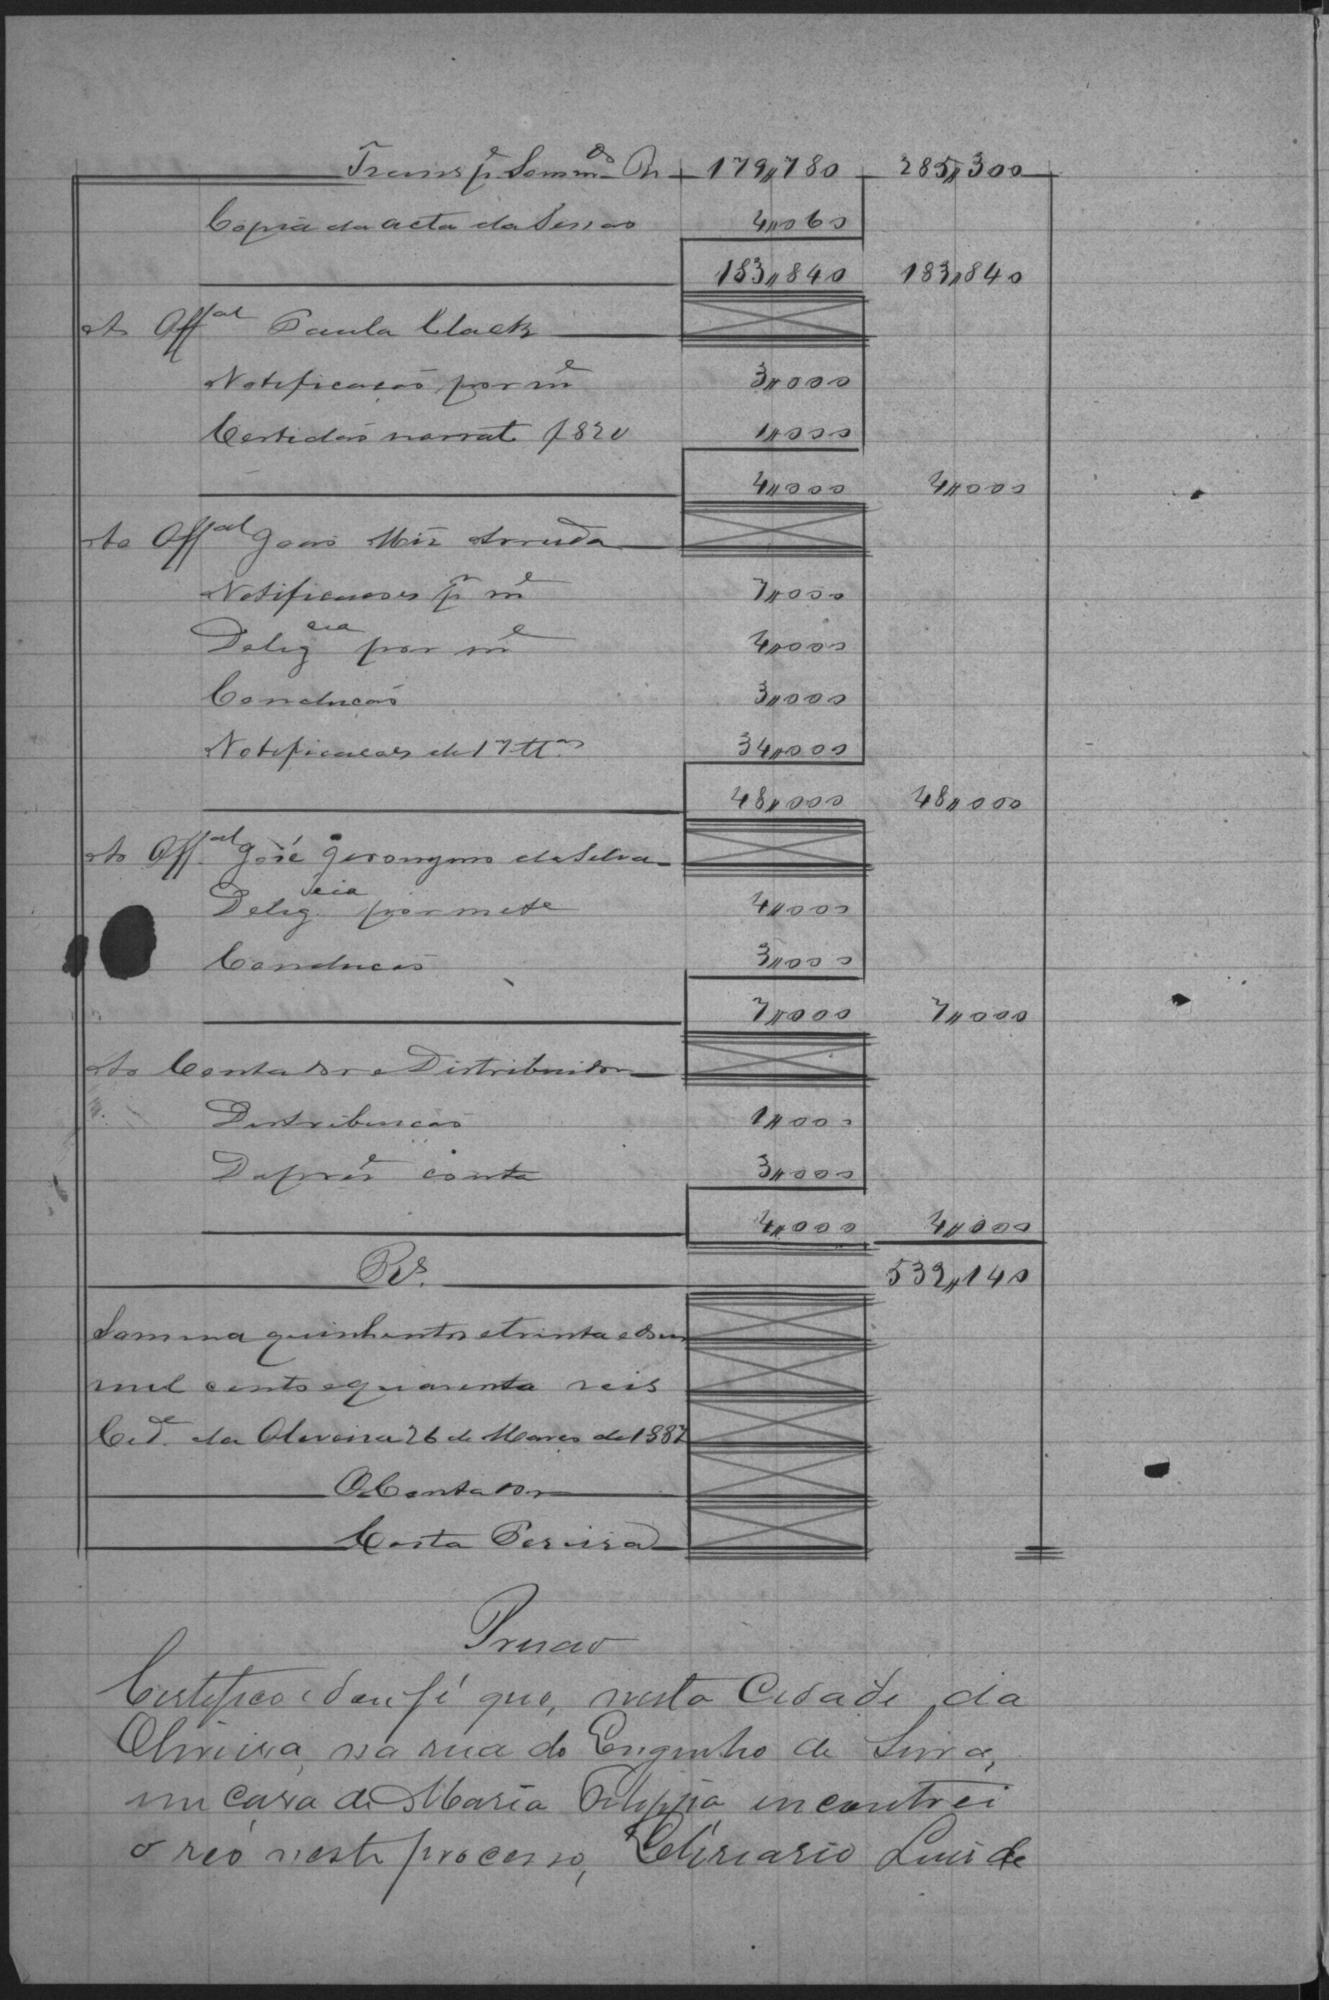 Transp.e Sommas Rs 179,,780 285,,300
Copia da acta da Sessao 4,,060
183,,840 183,,840
Ao Offal Paula Clack
Notificacaõ por me 3,,000
Certidaõ narrate f 82v 1,,000
4,,000 4,,000
Ao Offal Joaõ Miz Arruda
Notificacoes pr me 7,,000
Deligcia por me 4,,000
Conducaõ 3,,000
Notificacoes de 17 ttas 34,,000
48,,000 48,,000
Ao Offal José Jeronymo da Silva
Deligcia por mete 4,,000
Conducaõ 3,,000
7,,000 7,,000
Ao Contador e Distribuidor
Destribuicaõ 1,,000
Da preste conta 3,,000
4,,000 4,,000
Rs. 532,,140
Somma quinhentos e trinta e dous
mil cento e quarenta reis
Cide. da Oliveira 26 de Março de 1887
O Contador
Costa Pereira
Prisao
Certefico e dou fé que, nesta Cidade da
Oliveira, na rua do Engenho de Serra,
em casa de Maria Felippa encontrei
o réo neste processo, Belisario Luis de